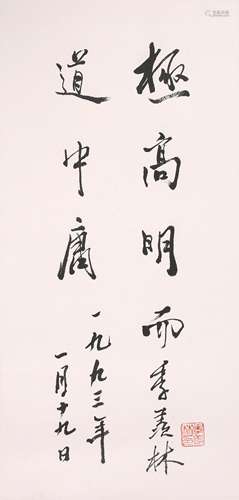 極高明而
道中庸
一九九三年
一月十九日
季羨林